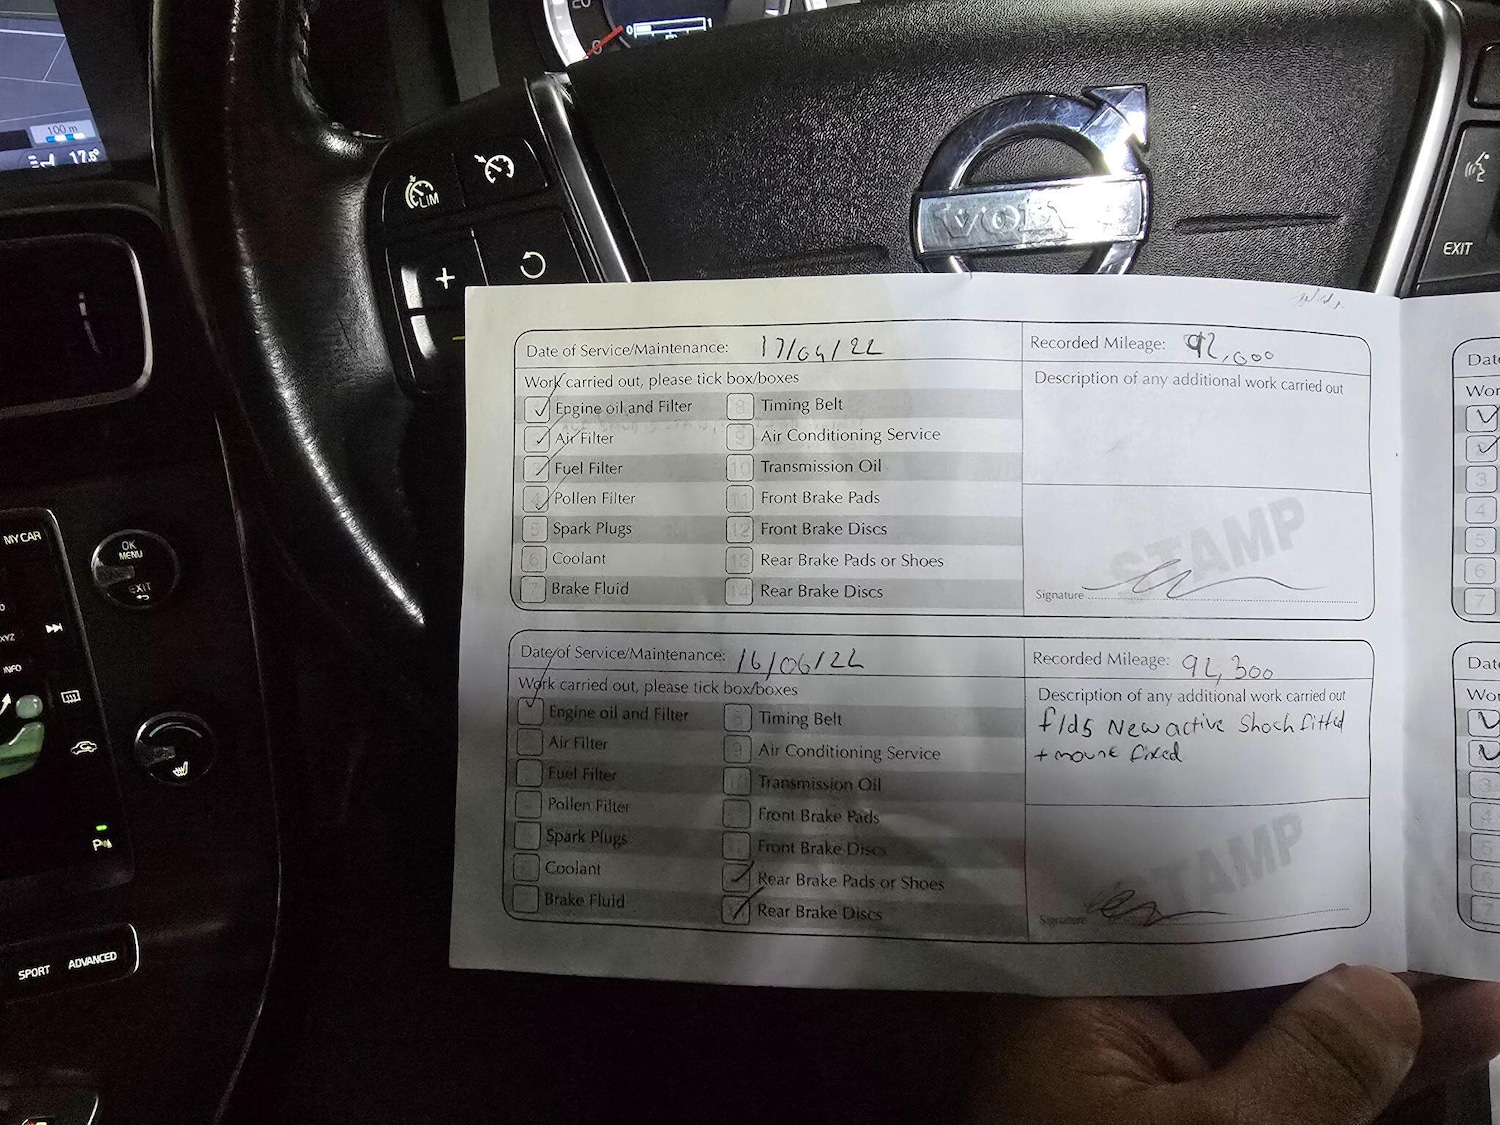 0
1
100 m
17.5°
LIM
+
VOLVO
EXIT
MY CAR
OK
MENU
EXIT
XYZ
INFO
SPORT ADVANCED
Date of Service/Maintenance: 17/04/22 Recorded Mileage: 92,000
Work carried out, please tick box/boxes Description of any additional work carried out
✓ Engine oil and Filter 8 Timing Belt
✓ Air Filter 9 Air Conditioning Service
✓ Fuel Filter 10 Transmission Oil
4 ✓ Pollen Filter 11 Front Brake Pads
5 Spark Plugs 12 Front Brake Discs
6 Coolant 13 Rear Brake Pads or Shoes
7 Brake Fluid 14 Rear Brake Discs
STAMP
Signature
Date of Service/Maintenance: 16/06/22 Recorded Mileage: 92,300
Work carried out, please tick box/boxes Description of any additional work carried out
✓ Engine oil and Filter Timing Belt
Air Filter Air Conditioning Service
Fuel Filter Transmission Oil
Pollen Filter Front Brake Pads
Spark Plugs Front Brake Discs
Coolant ✓ Rear Brake Pads or Shoes
Brake Fluid ✓ Rear Brake Discs
New active Shock fitted
+ mount fixed
STAMP
Signature
Date
Wor
3
4
5
6
7
Date
Wor